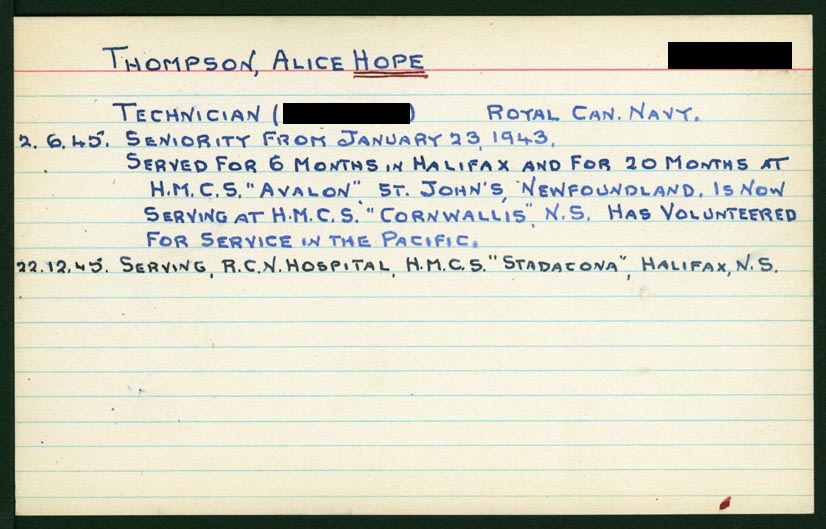 THOMPSON, ALICE HOPE
TECHNICIAN ( ) ROYAL CAN. NAVY.
2.6.45. SENIORITY FROM JANUARY 23, 1943.
SERVED FOR 6 MONTHS IN HALIFAX AND FOR 20 MONTHS AT
H.M.C.S. "AVALON", ST. JOHN'S, NEWFOUNDLAND. IS NOW
SERVING AT H.M.C.S. "CORNWALLIS", N.S. HAS VOLUNTEERED
FOR SERVICE IN THE PACIFIC.
22.12.45. SERVING, R.C.N. HOSPITAL, H.M.C.S. "STADACONA", HALIFAX, N.S.